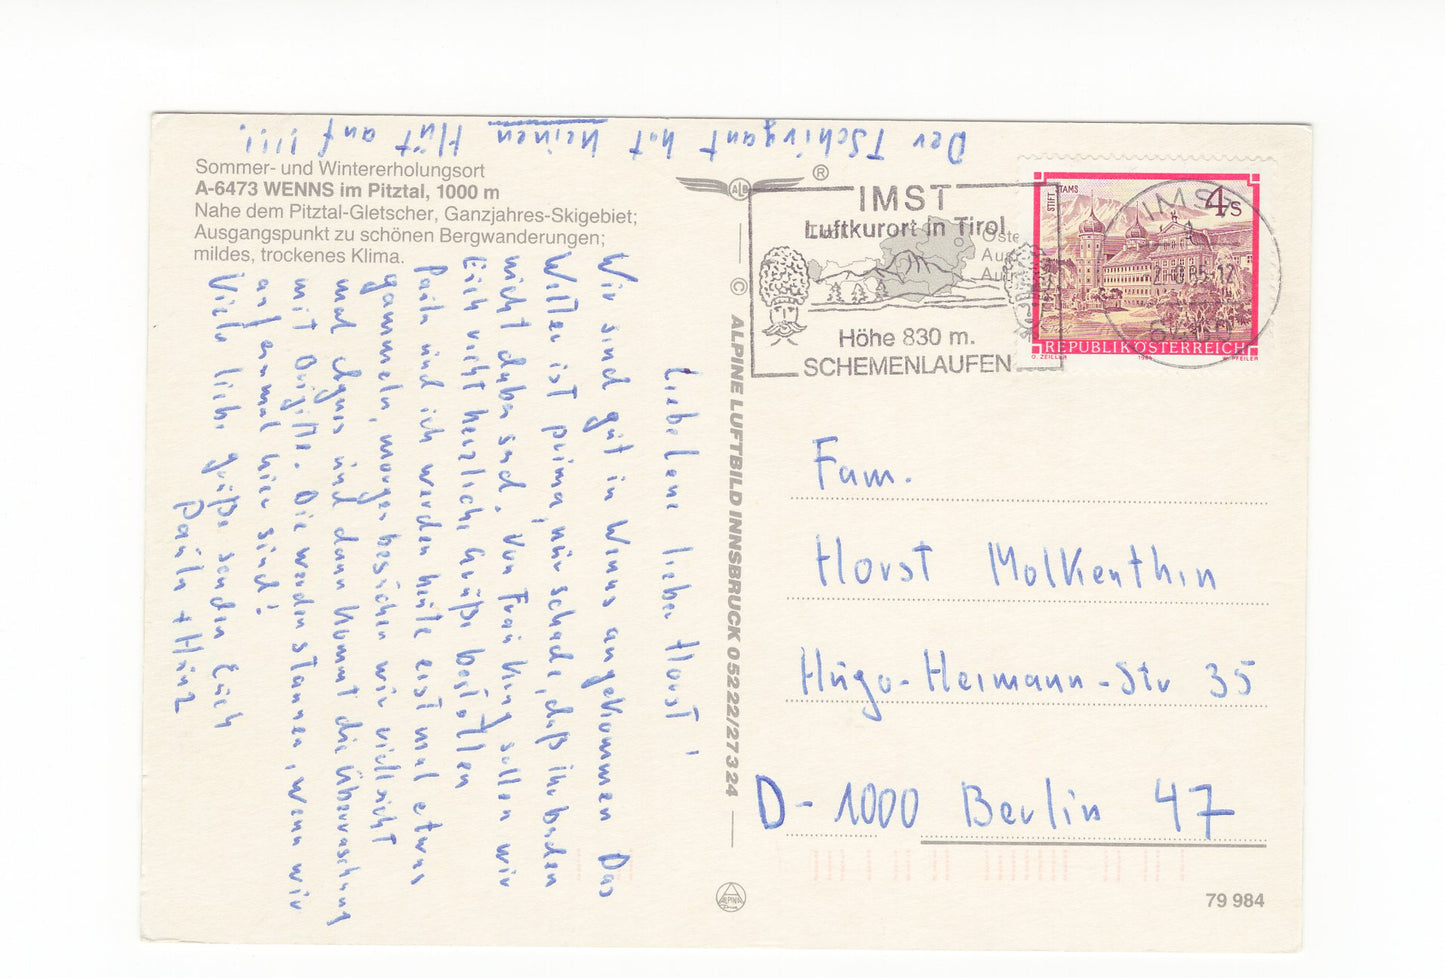 Der Tschirgant hat keinen Hut auf!!!!
Sommer- und Wintererholungsort
A-6473 WENNS im Pitztal, 1000 m
Nahe dem Pitztal-Gletscher, Ganzjahres-Skigebiet;
Ausgangspunkt zu schönen Bergwanderungen;
mildes, trockenes Klima.
Liebe Lene lieber Horst!
Wir sind gut in Wenns angekommen Das
Wetter ist prima, nur schade, daß ihr beiden
nicht dabei seid. Von Frau King sollen wir
Euch recht herzliche Grüße bestellen
Paula und ich werden heute erst mal etwas
gammeln, morgen besuchen wir vielleicht
mal Agnes und dann kommt die Überraschung
mit Brigitte. Die werden staunen, wenn wir
auf einmal hier sind!
Viele liebe Grüße senden Euch
Paula + Heinz
ALB ®
© ALPINE LUFTBILD INNSBRUCK 0 52 22/27 3 24
ALPINE
IMST
Luftkurort in Tirol
Höhe 830 m.
SCHEMENLAUFEN
IMST
STIFT STAMS
4 S
REPUBLIK ÖSTERREICH
O. ZEILLER 1984 W. PFEILER
Fam.
Horst Molkenthin
Hugo-Heimann-Str 35
D-1000 Berlin 47
79 984